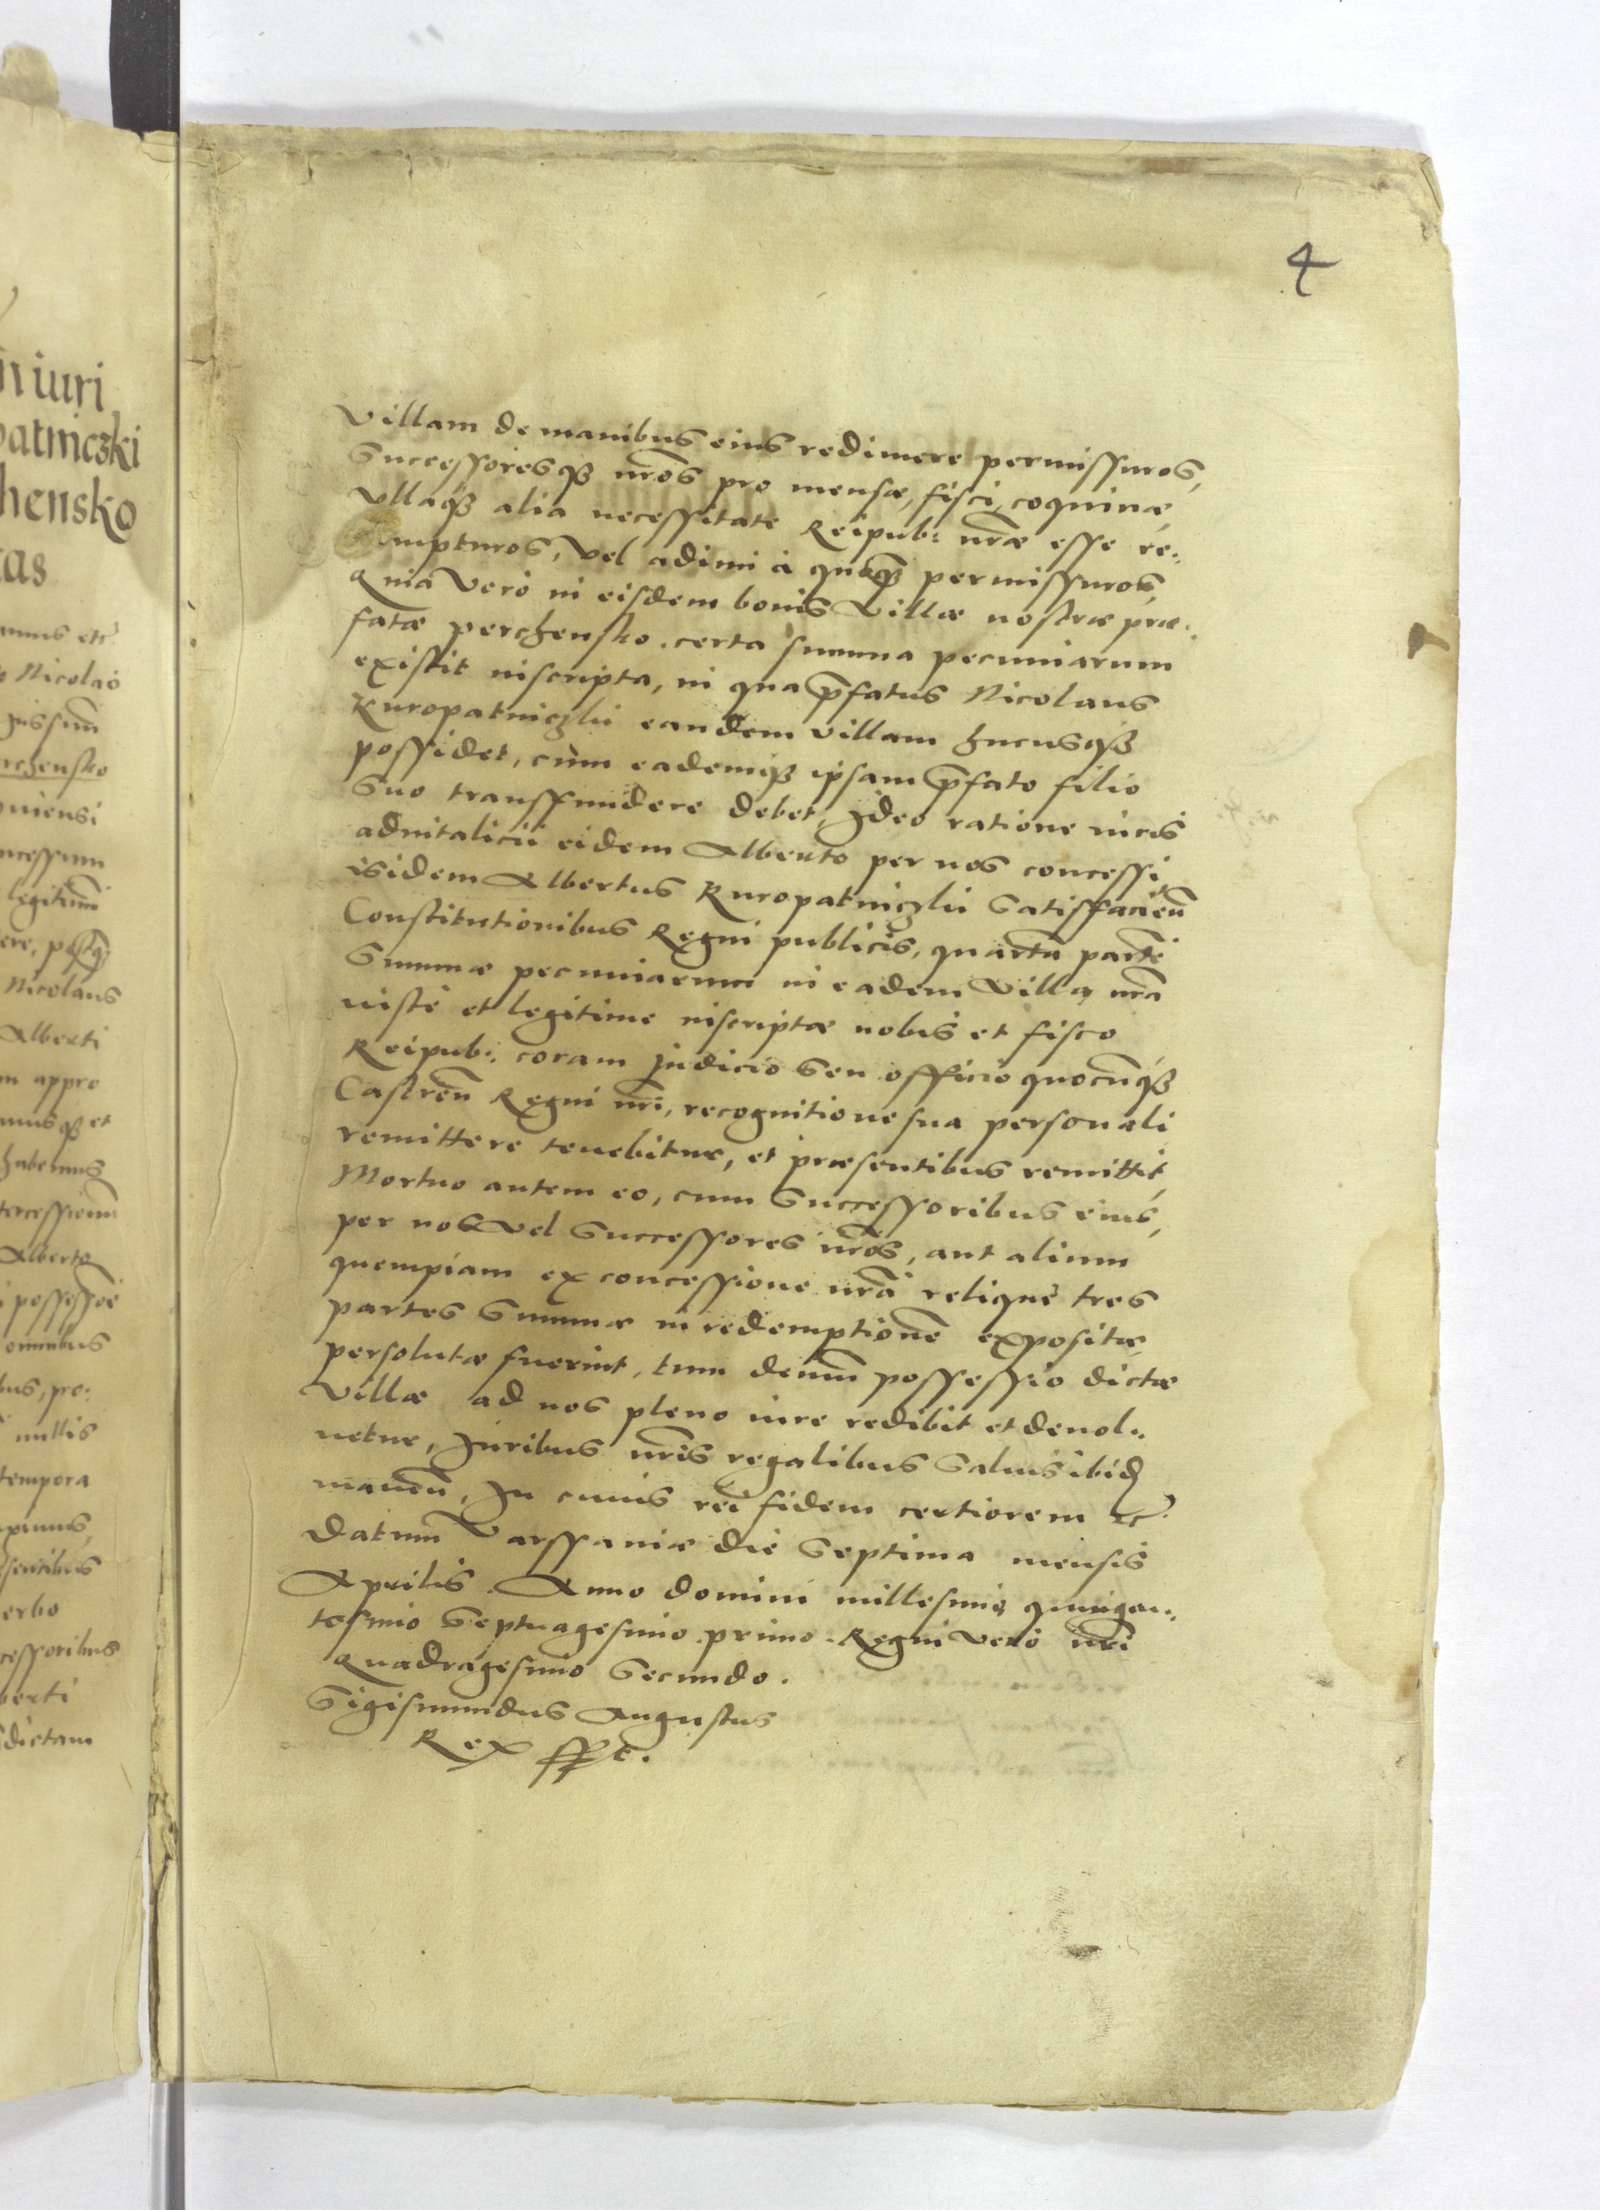 4
villam de manibus eius redimere permissuros,
Successoresq₃ nr̃os pro mensæ, fisci, coquinæ,
vllaq₃ alia necessitate Reipub: nr̃æ esse re:
empturos, vel adimi à quoq̃ permissuros,
Quia vero in eisdem bonis villæ nostræ præ:
fatæ perchensko. certa summa pecuniarum
existit inscripta, in qua p̃fatus Nicolaus
Kuropatniczki eandem villam hucusq₃
possidet, cum eademq₃ ipsam p̃fato filio
Suo transfundere debet, Ideo ratione iuris
aduitalicii eidem Alberto per nos concessi
isidem Albertus Kuropatniczki Satisfacien̄
Constitutionibus Regni publicis, quartā partē
Summæ pecuniarum in eadem villa nr̃a
iuste et legitime inscriptæ nobis et fisco
Reipub: coram Judicio seu officio quocūq₃
Castren̄ Regni nr̃i, recognitione sua personali
remittere tenebitur, et præsentibus remittit,
Mortuo autem eo, cum Successoribus eius,
per nos vel Successores nr̃os, aut alium
quempiam ex concessione nr̃a reliquę tres
partes Summæ in redemptionē expositæ,
persolutæ fuerint, tum demū possessio dictæ
villæ ad nos pleno iure redibit et deuol:
uetur, Juribus nr̃is regalibus Saluis ibid
manen̄, In cuius rei fidem certiorem etc̃
Datum Varssauiæ die Septima mensis
Aprilis. Anno domini millesimo quingen:
tesimo Septuagesimo primo. Regni vero nr̃i
Quadragesimo Secundo.
Sigismundus Augustus
Rex sspt.
n iuri
patniczki
hensko
tas
amus etc̃
Nicolao
rchensko
legitimi
Nicolaus
Alberti
m appro
musq₃ et
habemus
Alberto
possessioē
omnibus
nullis
tempora
erbo
cessoribus
berti
dictam